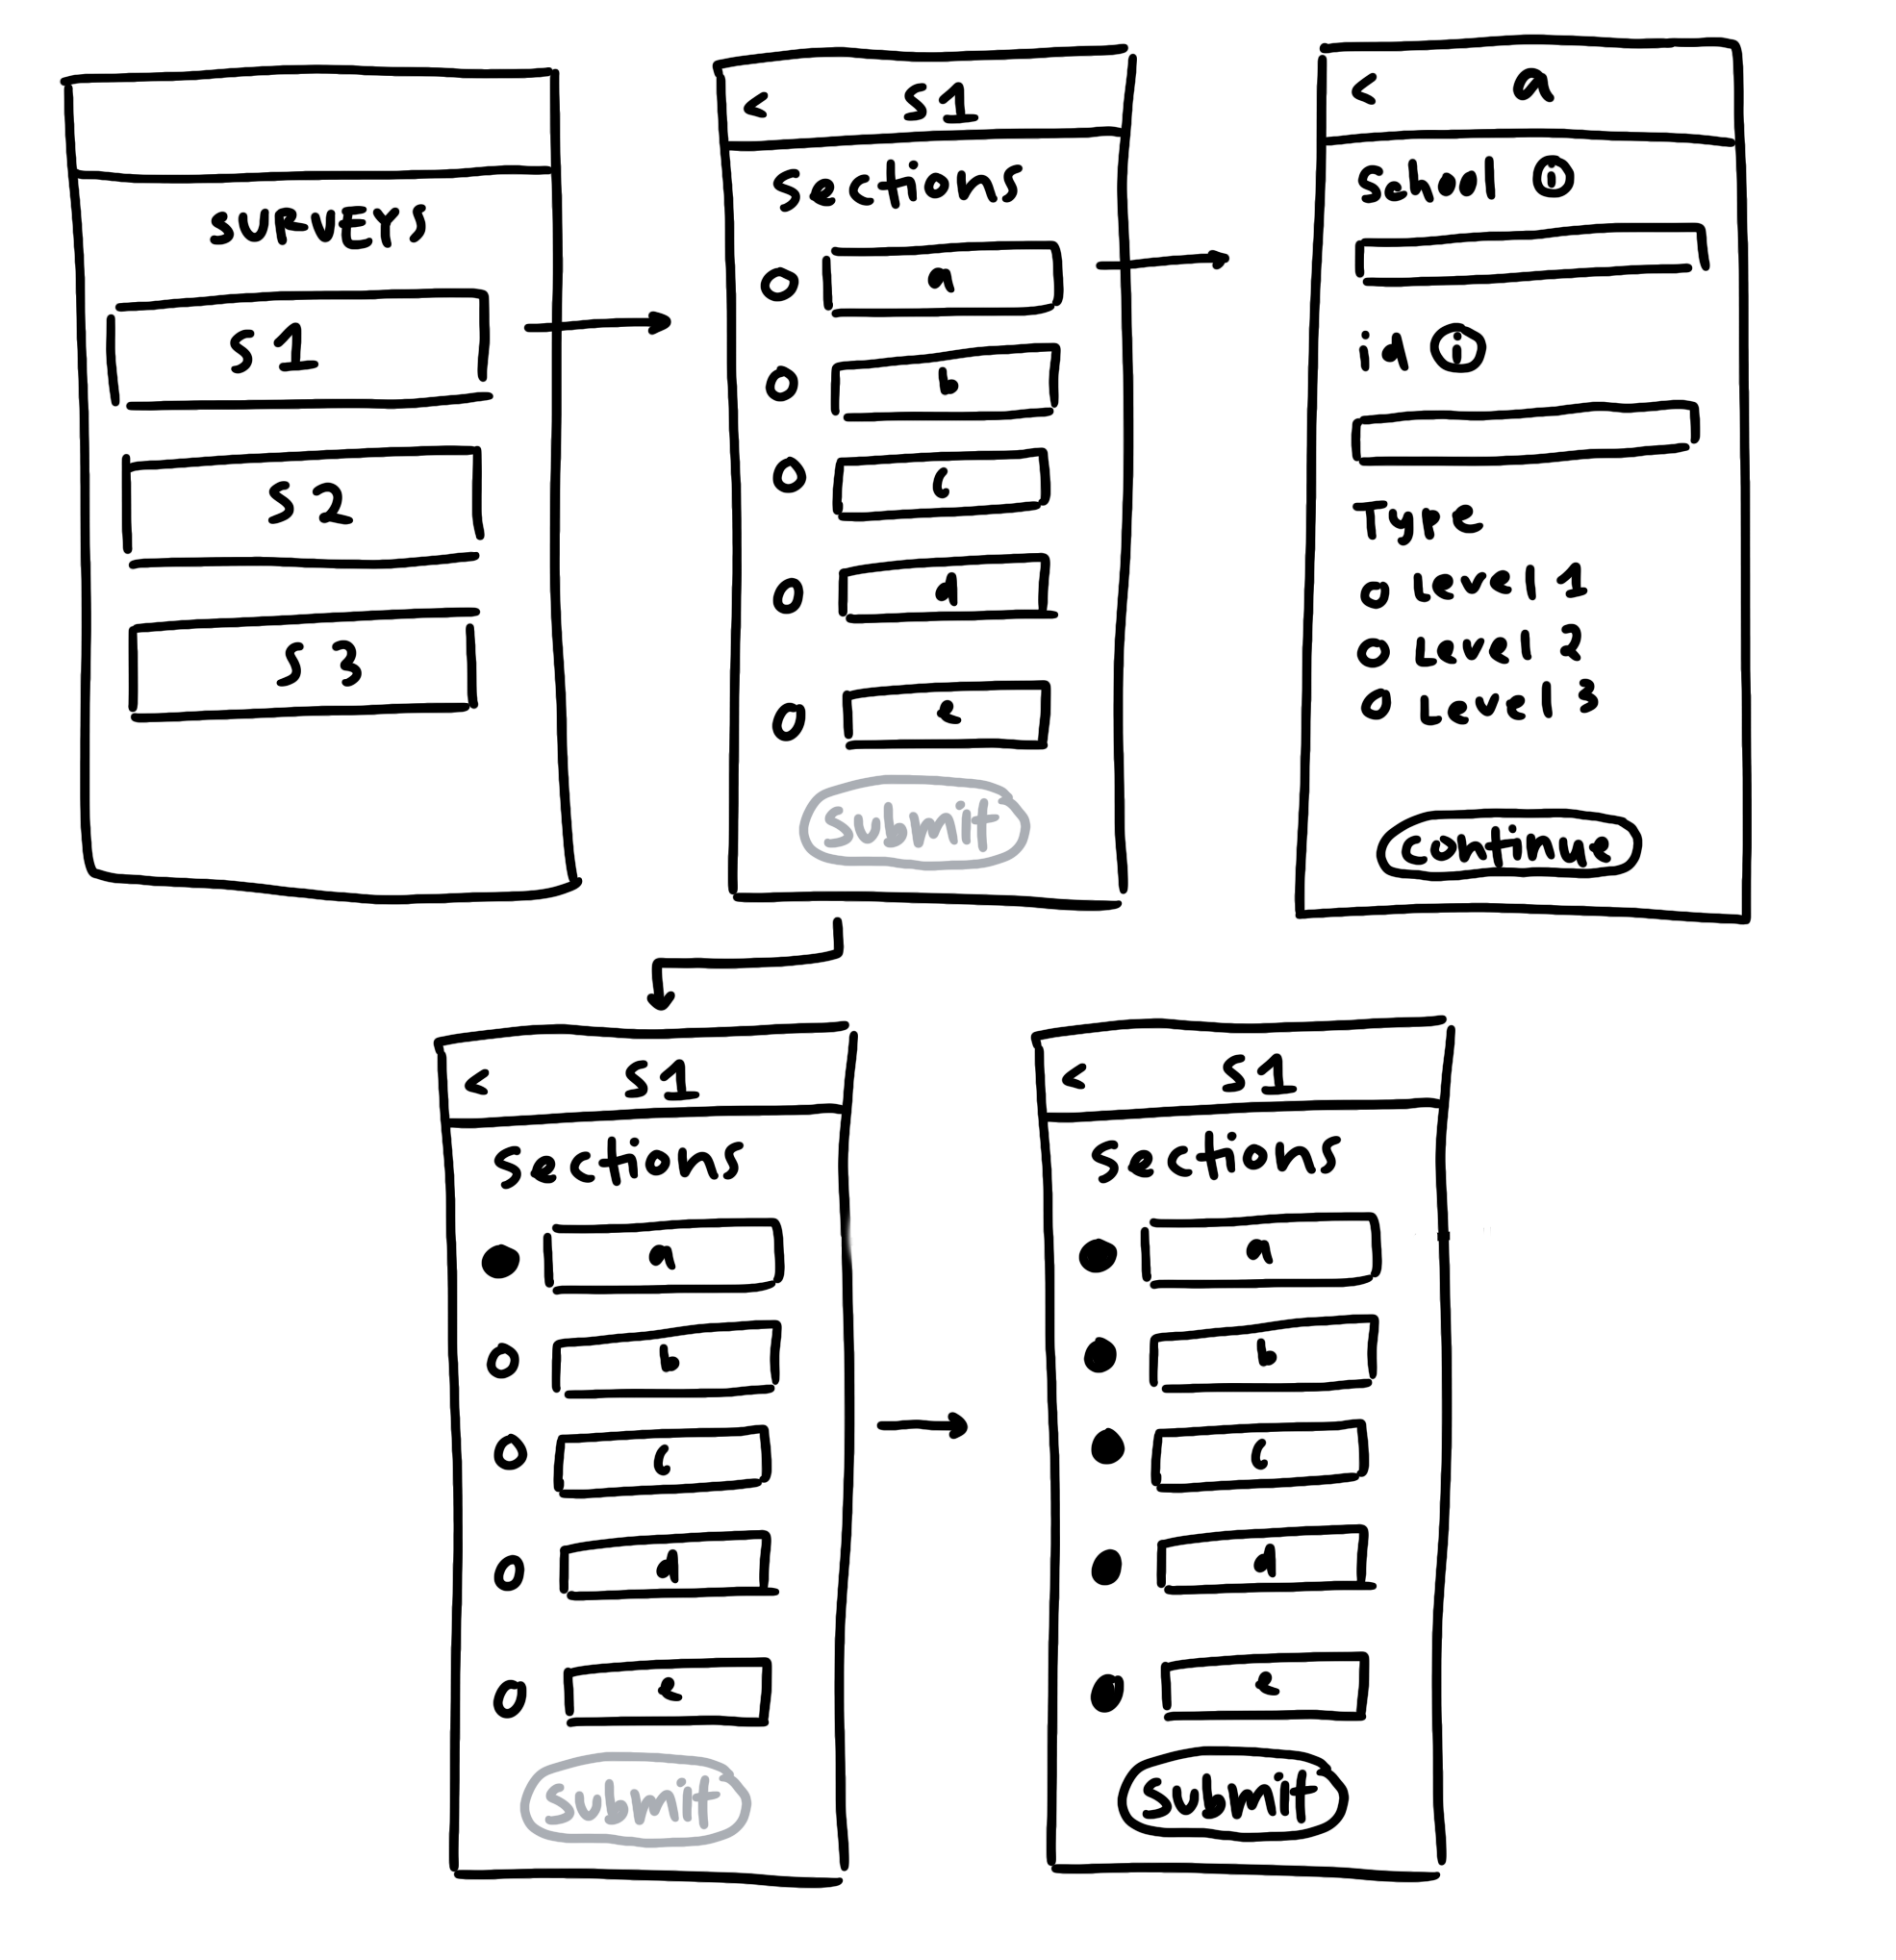 SURVEYS
S1
S2
S3
< S1
Sections
a
b
c
d
e
submit
< a
School i
id i
Type
Level 1
Level 2
Level 3
continue
< S1
Sections
a
b
c
d
e
submit
< S1
Sections
a
b
c
d
e
submit